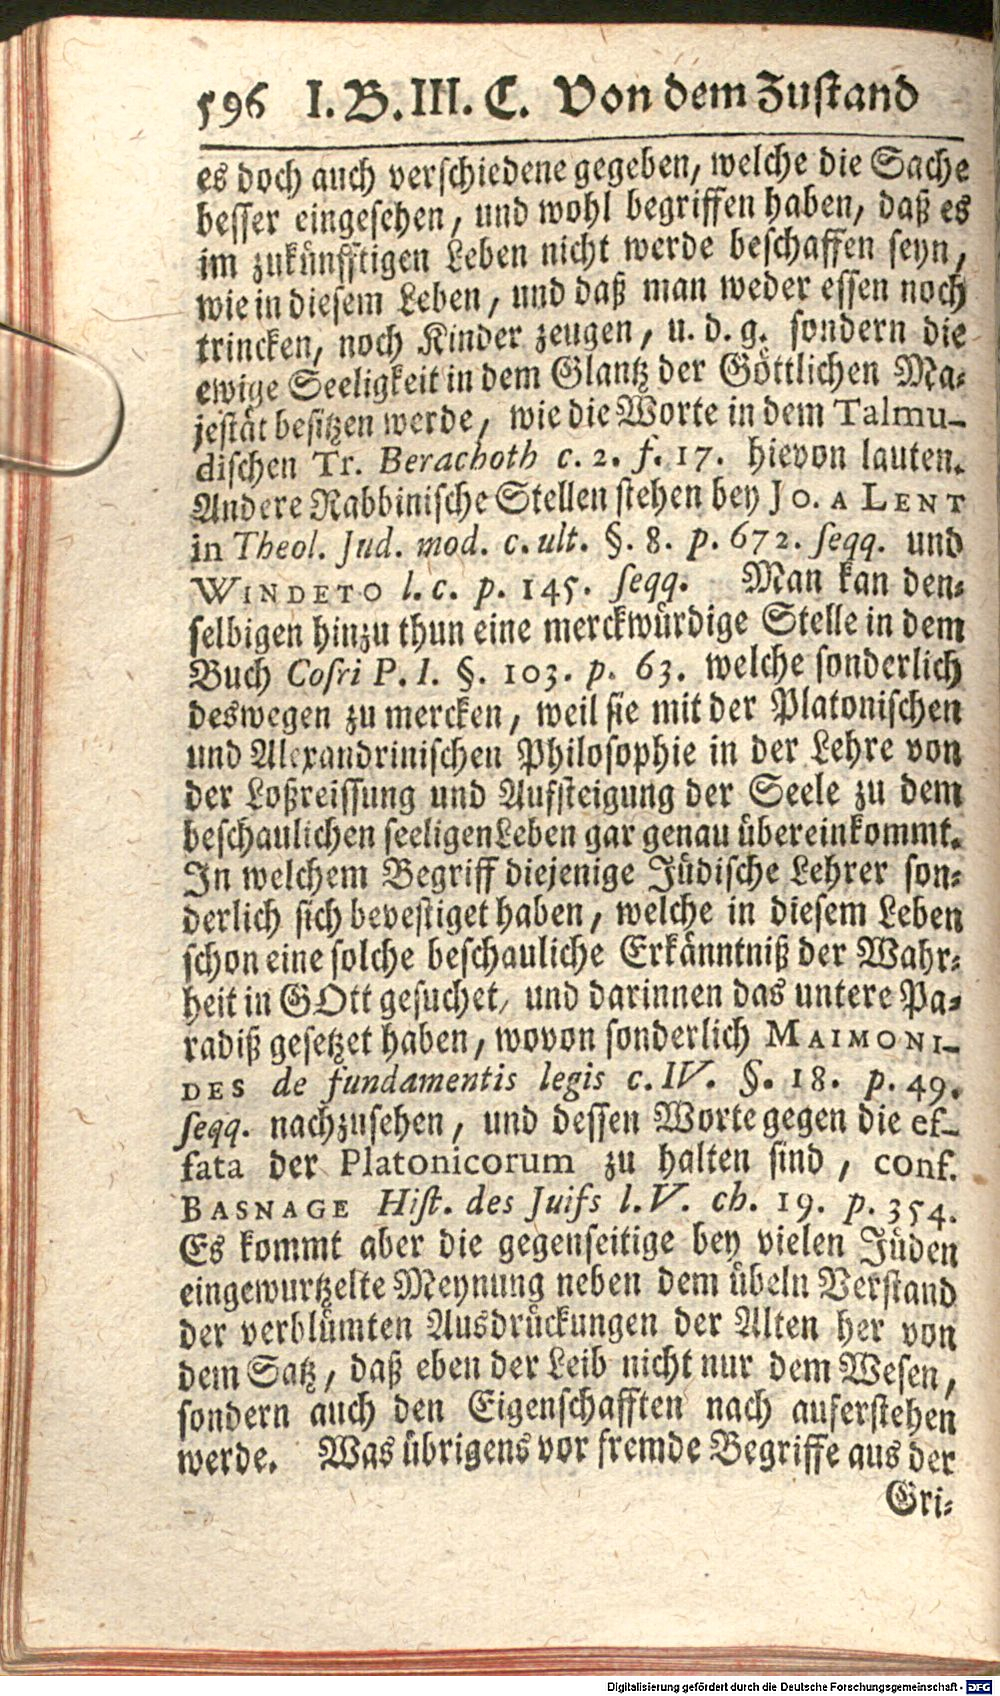 596 I. B. III. C. Von dem Zustand
es doch auch verschiedene gegeben, welche die Sache
besser eingesehen, und wohl begriffen haben, daß es
im zukünfftigen Leben nicht werde beschaffen seyn,
wie in diesem Leben, und daß man weder essen noch
trincken, noch Kinder zeugen, u. d. g. sondern die
ewige Seeligkeit in dem Glantz der Göttlichen Ma-
jestät besitzen werde, wie die Worte in dem Talmu-
dischen Tr. Berachoth c. 2. f. 17. hievon lauten.
Andere Rabbinische Stellen stehen bey JO. A LENT
in Theol. Jud. mod. c. ult. §. 8. p. 672. seqq. und
WINDETO l. c. p. 145. seqq. Man kan den-
selbigen hinzu thun eine merckwürdige Stelle in dem
Buch Cosri P. I. §. 103. p. 63. welche sonderlich
deswegen zu mercken, weil sie mit der Platonischen
und Alexandrinischen Philosophie in der Lehre von
der Loßreissung und Aufsteigung der Seele zu dem
beschaulichen seeligen Leben gar genau übereinkommt.
In welchem Begriff diejenige Jüdische Lehrer son-
derlich sich bevestiget haben, welche in diesem Leben
schon eine solche beschauliche Erkänntniß der Wahr-
heit in GOtt gesuchet, und darinnen das untere Pa-
radiß gesetzet haben, wovon sonderlich MAIMONI-
DES de fundamentis legis c. IV. §. 18. p. 49.
seqq. nachzusehen, und dessen Worte gegen die ef-
fata der Platonicorum zu halten sind, conf.
BASNAGE Hist. des Juifs l. V. ch. 19. p. 354.
Es kommt aber die gegenseitige bey vielen Jüden
eingewurtzelte Meynung neben dem übeln Verstand
der verblümten Ausdrückungen der Alten her von
dem Satz, daß eben der Leib nicht nur dem Wesen,
sondern auch den Eigenschafften nach auferstehen
werde. Was übrigens vor fremde Begriffe aus der
Gri-
Digitalisierung gefördert durch die Deutsche Forschungsgemeinschaft - DFG